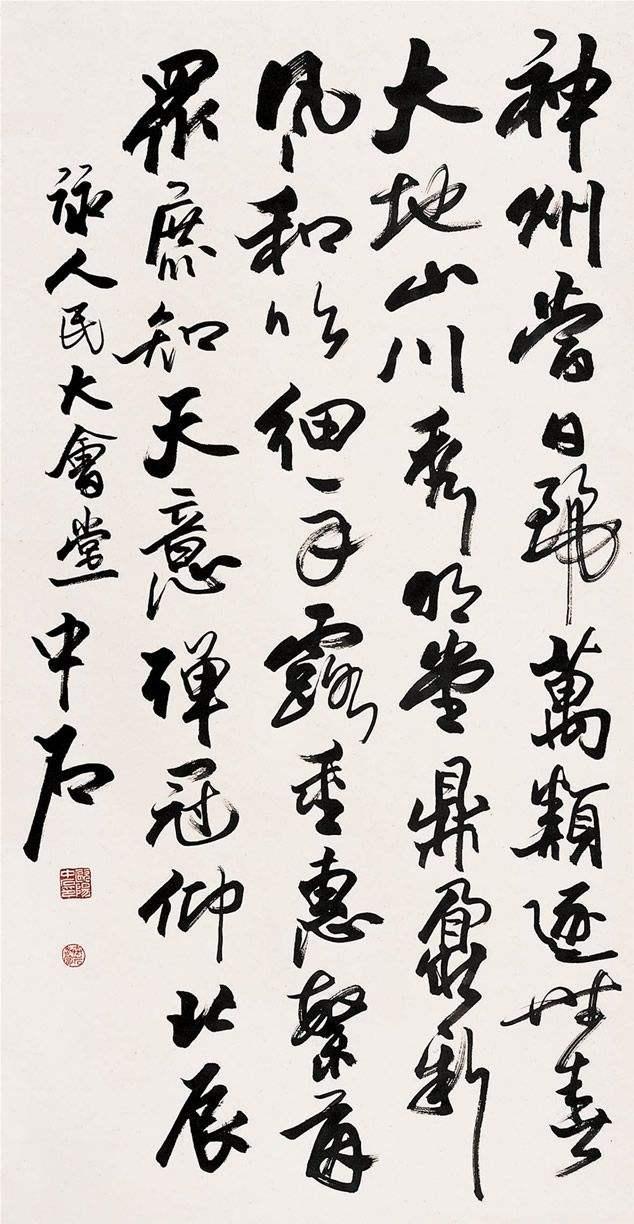 神州當日麗萬類遂性春
大地山川秀明堂鼎鼐新
風和吹細草露垂惠繁
眾庶知天意彈冠仰北辰
詠人民大會堂中石